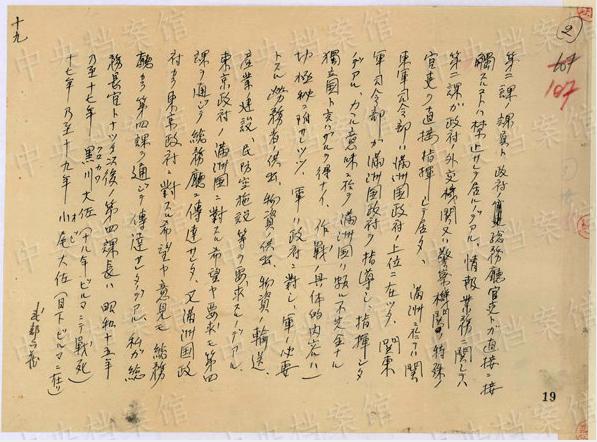 第二課ノ課員ト政府ノ總務廳官吏トガ直接ニ接
觸スルコトハ禁止サレテ居ルノデアル、情報業務ニ関シテハ
第二課ガ政府ノ外交機関又ハ警察機関ノ特殊ノ
官吏ヲ直接指揮シテ居タ、
満洲ニ於テハ関
東軍司令部ハ満洲國政府ノ上位ニ在ツタ、関東
軍司令部ガ満洲國政府ヲ指導シ、指揮シタ
ノデアル、カカル意味ニ於テ満洲國ハ頗ル不完全ナル
獨立國ト言ハザルヲ得ナイ、作戦ノ具体的内容ハ
軍ハ政府ニ對シ、軍ノ必要
トスル労務者ノ供出、物資ノ供出、物資ノ輸送
産業建設、民防空施設等ヲ要求スルノデアル、
東京政府ノ満洲國ニ對スル希望ヤ要求モ第四
課ヲ通ジテ總務廳ニ傳達サレタ、又満洲國政
府カラ東京政府ニ對スル希望ヤ意見モ總務
廳カラ第四課ヲ通ジテ傳達サレタノデアル、私ガ總
務長官トナツタ以後ノ第四課長ハ昭和十五年
乃至十七年 黒川大佐(ビルマニテ戦死)
十七年乃至十九年 小尾大佐(目下ビルマニ在リ)
武部六蔵
十九
2
107
19
中央档案馆